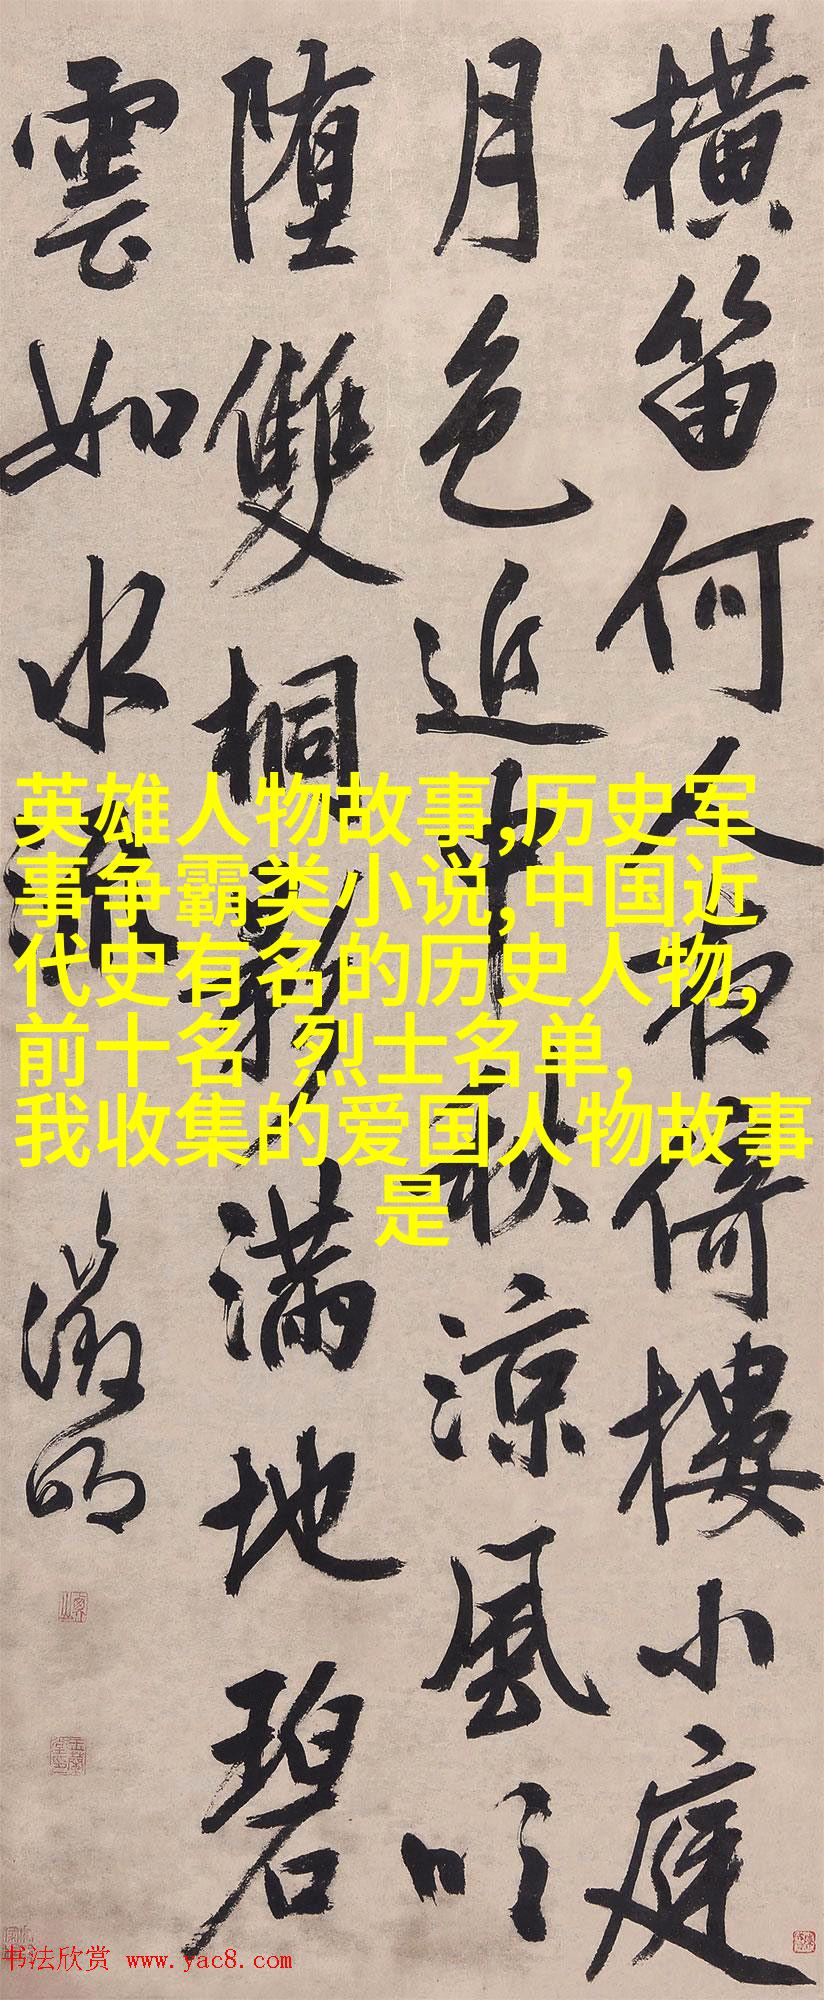 橫笛何人夜倚樓小庭
月色近中秋涼風吹
堕雙桐影滿地碧
雲如水流
徵明
英雄人物故事,历史军
事争霸类小说,中国近
代史有名的历史人物,
前十名 烈士名单,
我收集的爱国人物故事
是
书法欣赏 www.yac8.com